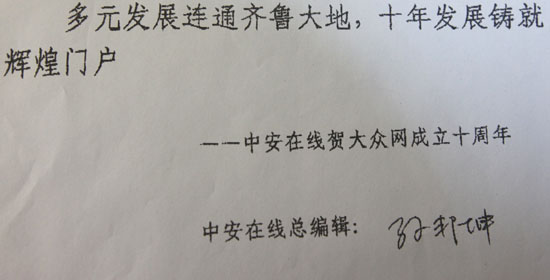 多元发展连通齐鲁大地，十年发展铸就
辉煌门户
——中安在线贺大众网成立十周年
中安在线总编辑：孙邦坤